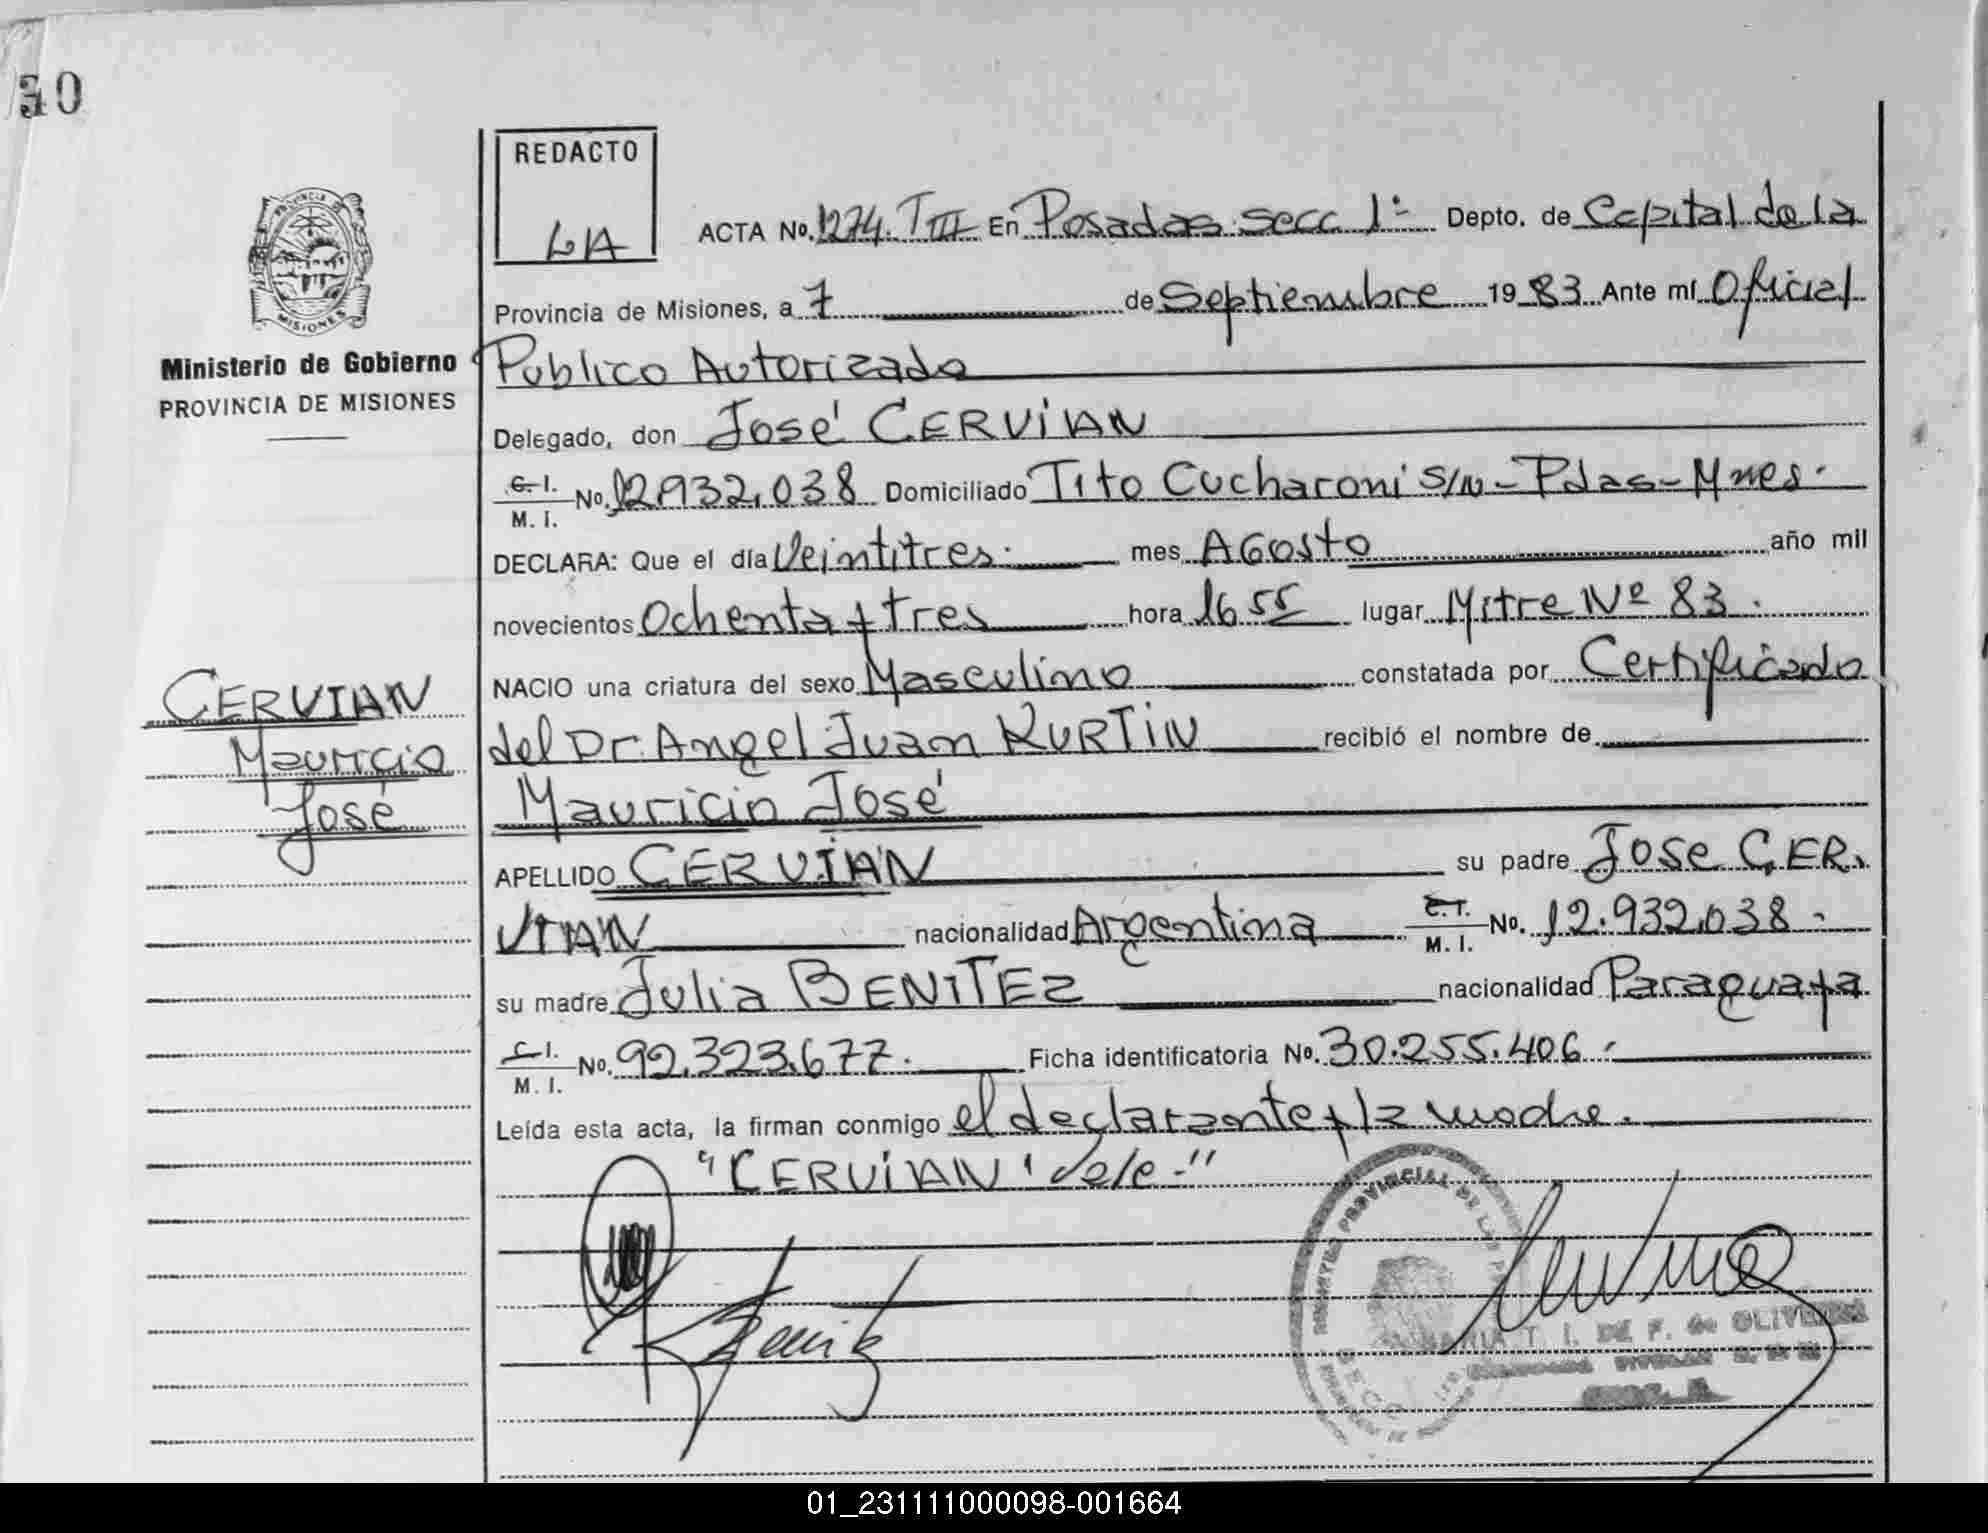 30
REDACTO
LA
PROVINCIA DE
MISIONES
Ministerio de Gobierno
PROVINCIA DE MISIONES
CERVIAN
Mauricio
José
ACTA No. 1274. T III En Posadas secc 1ª Depto. de Capital de la
Provincia de Misiones, a 7 de Septiembre 1983 Ante mí Oficial
Publico Autorizado
Delegado, don José CERVIAN
C. I. / M. I. No. 12.932.038 Domiciliado Tito Cucharoni S/N - Pdas - Mnes.
DECLARA: Que el día Veintitres mes Agosto año mil
novecientos Ochenta y tres hora 16 55 lugar Mitre Nº 83.
NACIO una criatura del sexo Masculino constatada por Certificado
del Dr. Angel Juan KURTIN recibió el nombre de
Mauricio José
APELLIDO CERVIAN su padre Jose CER
VIAN nacionalidad Argentina C. I. / M. I. No. 12.932.038.
su madre Julia BENITEZ nacionalidad Paraguaya
C. I. / M. I. No. 92.323.677. Ficha identificatoria No. 30.255.406.
Leída esta acta, la firman conmigo el declarante y la madre.
"CERVIAN" Vale-"
PROVINCIAL DE LAS
MARIA T. I. DE F. de OLIVEIRA
01_231111000098-001664